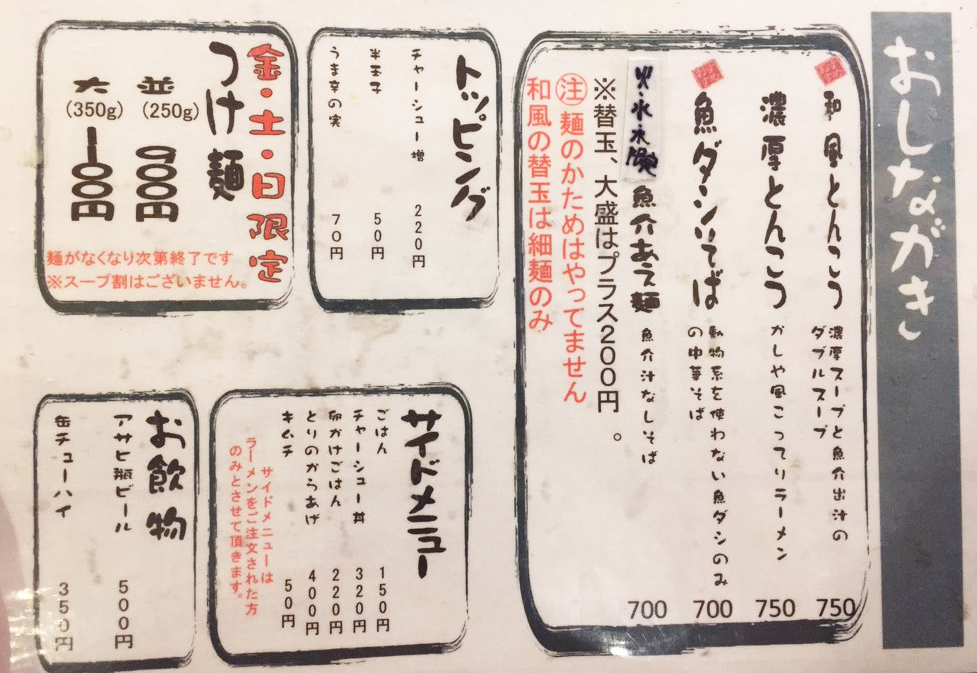 おしながき
和風とんこつ
濃厚スープと魚介出汁の
ダブルスープ
750
濃厚とんこつ
かしや風こってりラーメン
750
魚ダシそば
動物系を使わない魚ダシのみ
の中華そば
700
火・水・木限定
魚介あえ麺
魚介汁なしそば
700
※替玉、大盛はプラス200円。
注 麺のかためはやってません
和風の替玉は細麺のみ
トッピング
チャーシュー増 220円
半玉子 50円
うま辛の実 70円
金・土・日限定
つけ麺
並(250g) 900円
大(350g) 1000円
麺がなくなり次第終了です
※スープ割はございません。
サイドメニュー
ごはん 150円
チャーシュー丼 320円
卵かけごはん 220円
とりのからあげ 400円
キムチ 50円
サイドメニューは
ラーメンをご注文された方
のみとさせて頂きます。
お飲物
アサヒ瓶ビール 500円
缶チューハイ 350円